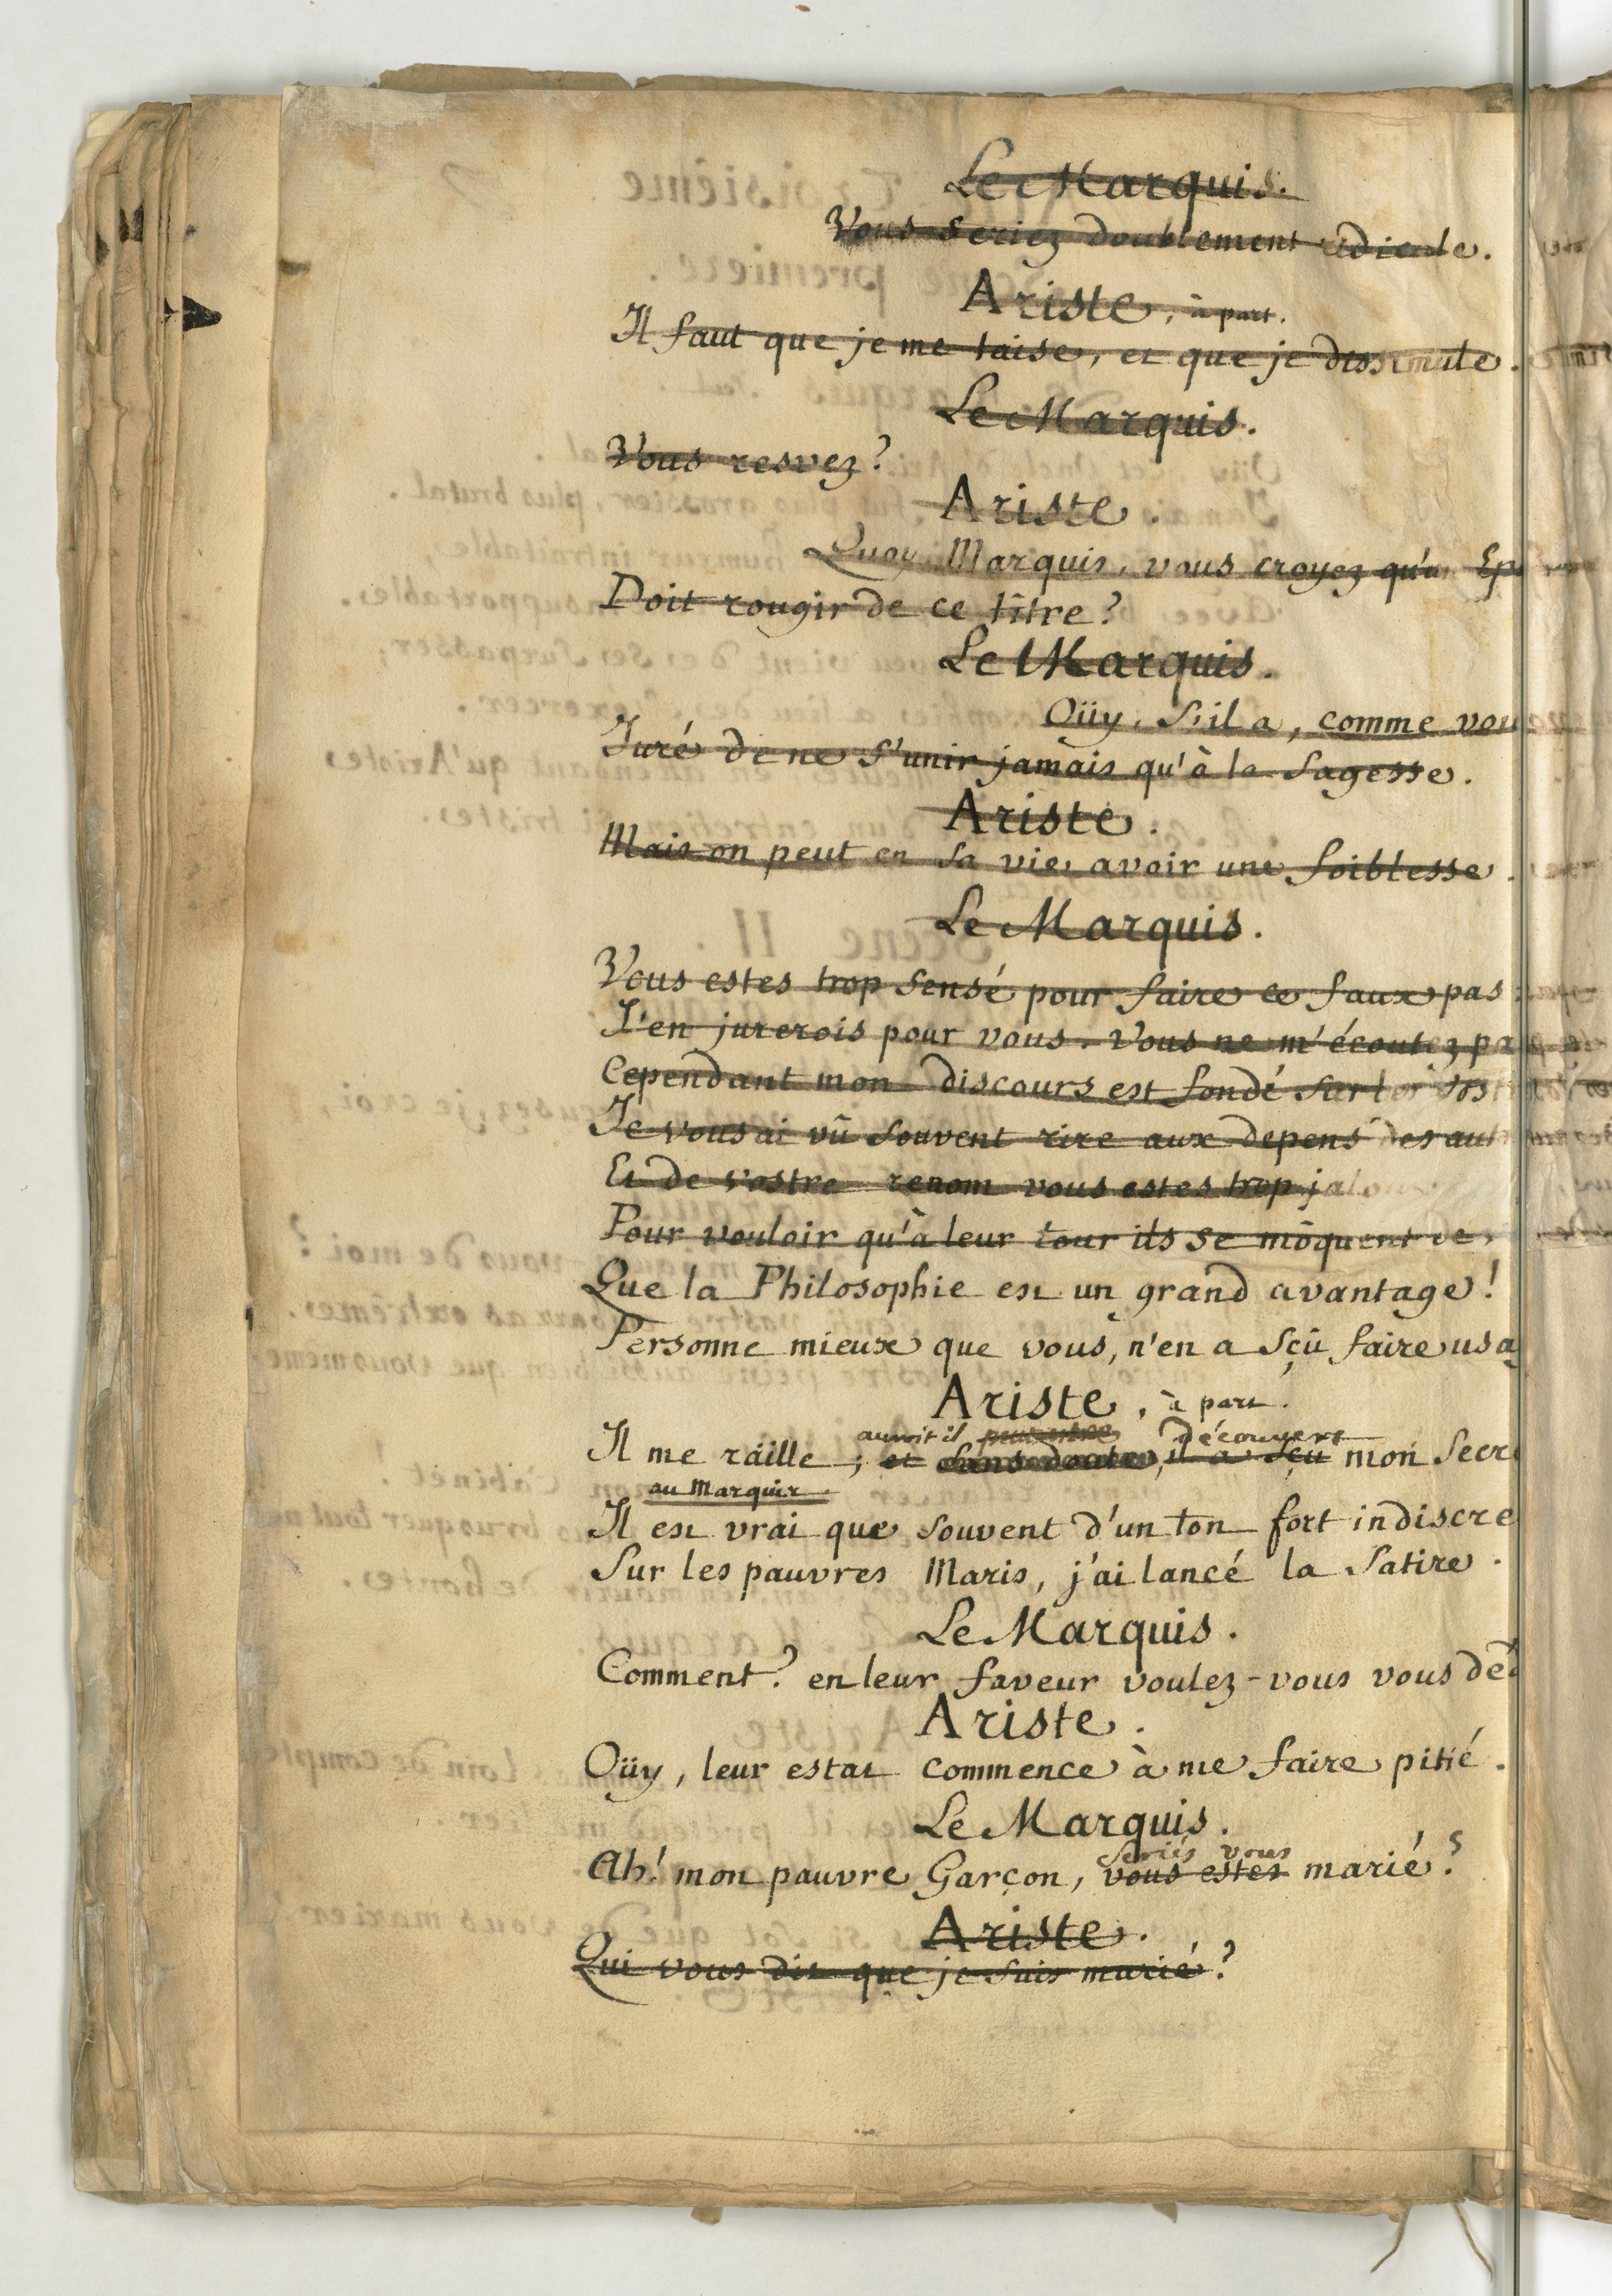 Le Marquis.
Vous seriez doublement ridicule.
Ariste, à part.
Il faut que je me taise, et que je dissimule.
Le Marquis.
Vous resvez?
Ariste.
Quoy Marquis, vous croyez qu'un Ep
Doit rougir de ce titre?
Le Marquis.
Oüy, s'il a, comme vou
Juré de ne s'unir jamais qu'à la sagesse.
Ariste.
Mais on peut en sa vie avoir une foiblesse.
Le Marquis.
Vous estes trop sensé pour faire ce faux pas:
J'en jurerois pour vous. Vous ne m'écoutez pa
Cependant mon discours est fondé sur les vos
Je vous ai vû souvent rire aux depens des aut
Et de vostre renom vous estes trop jaloux
Pour vouloir qu'à leur tour ils se môquent de
Que la Philosophie est un grand avantage!
Personne mieux que vous, n'en a sçû faire usa
Ariste, à part.
auroit il peut estre découvert
Il me raille; et sans doute, il a sçu mon secr
au Marquis
Il est vrai que souvent d'un ton fort indiscre
Sur les pauvres Maris, j'ai lancé la Satire.
Le Marquis.
Comment? en leur faveur voulez-vous vous dé
Ariste.
Oüy, leur estat commence à me faire pitié.
Le Marquis.
seriés vous
Ah! mon pauvre Garçon, vous estes marié?
Ariste.
Qui vous dit que je suis marié?